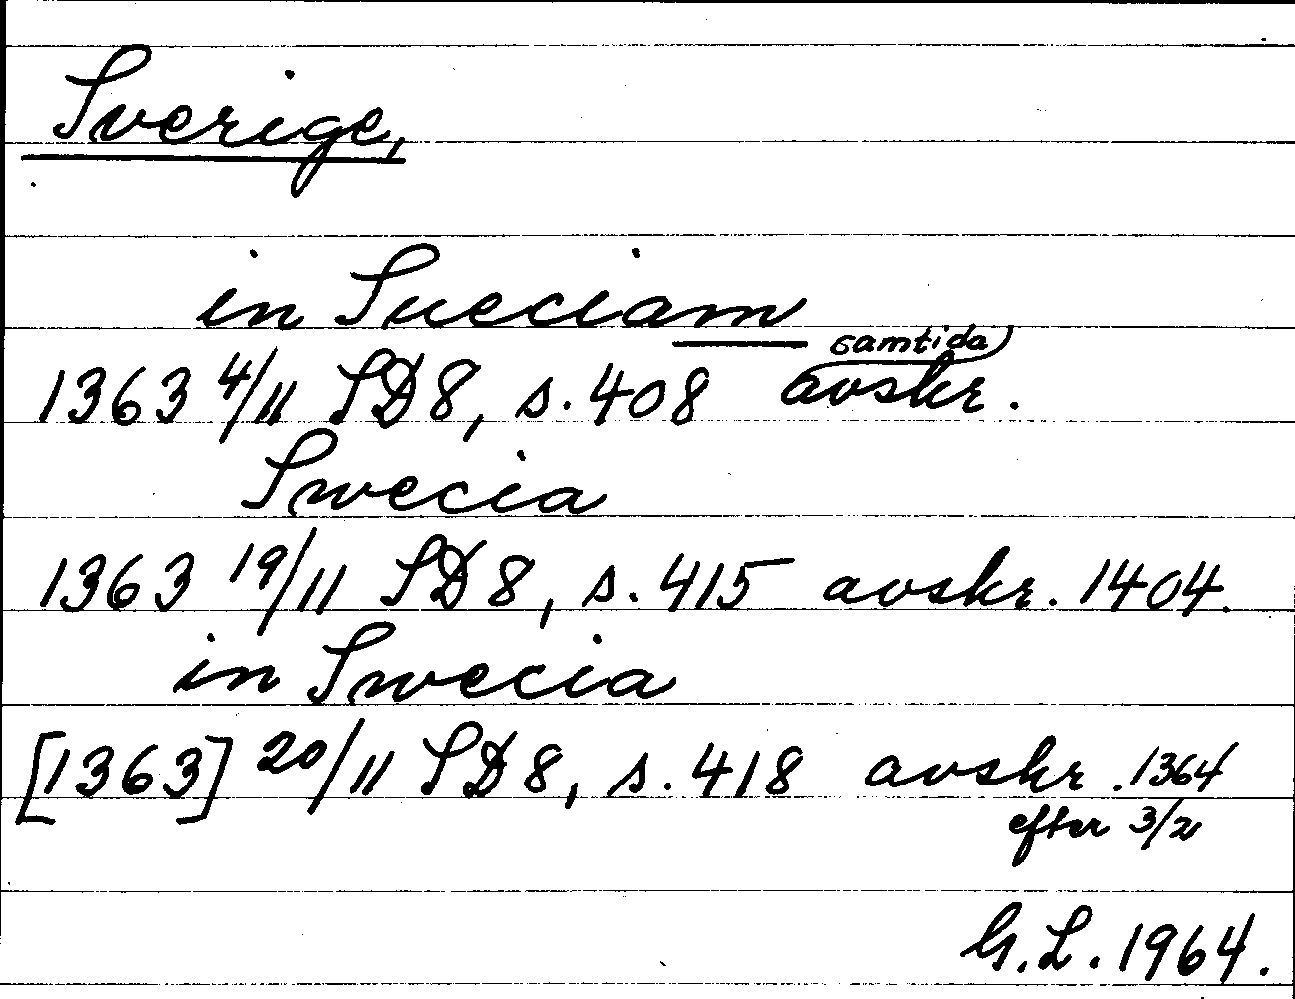 Sverige,
in Sueciam
samtida
1363 4/11 SD 8, s. 408 avskr.
Swecia
1363 19/11 SD 8, s. 415 avskr. 1404.
in Swecia
[1363] 20/11 SD 8, s. 418 avskr. 1364
efter 3/2
G. L. 1964.